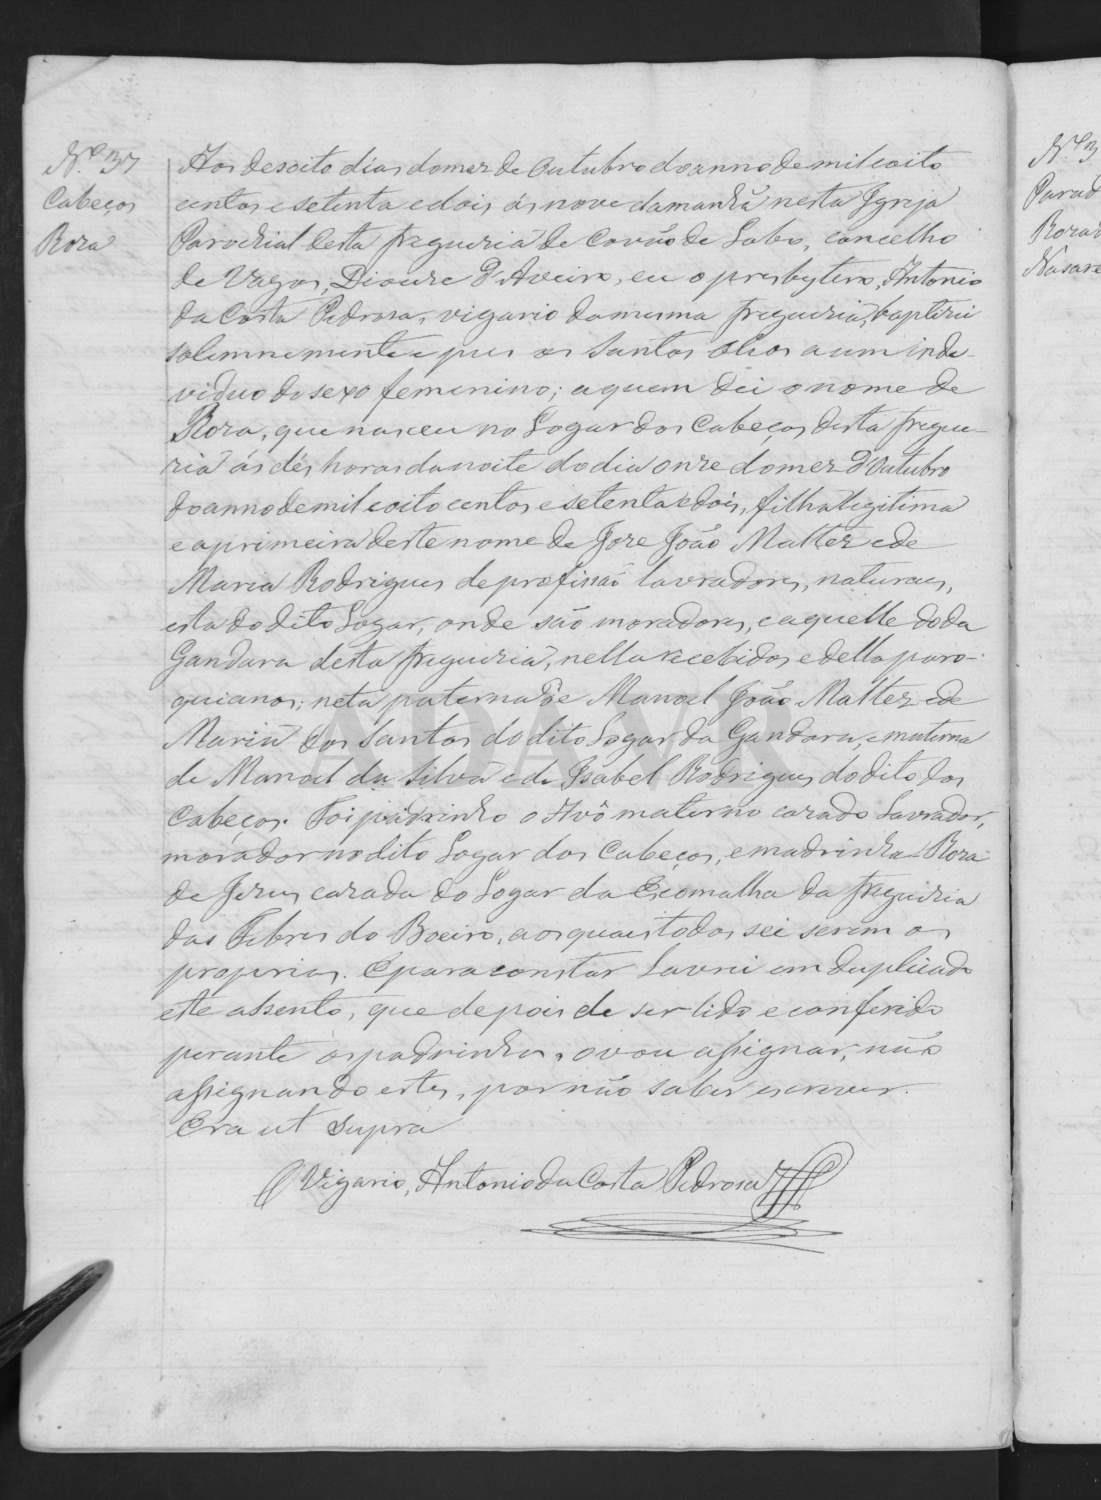 Nº 37
Cabeços
Roza
Aos desoito dias do mez de Outubro do anno de mil e oito
centos e setenta e dois ás nove da manhã nesta Igreja
Parochial desta freguezia de Covão de Lobo, concelho
de Vagos, Diocese d'Aveiro, eu o presbytero, Antonio
da Costa Pedrosa, vigario da mesma freguezia, baptizei
solemnemente e pus os Santos Olios a um inde-
viduo do sexo femenino; a quem dei o nome de
Roza, que nasceu no Logar dos Cabeços desta fregue-
zia ás dés horas da noite do dia onze do mez d'Outubro
do anno de mil e oito centos e setenta e dois, filha legitima
e a primeira deste nome de Joze João Maltez e de
Maria Rodrigues de profissão lavradores, naturaes,
esta do dito Logar, onde são moradores, e aquelle do da
Gandara desta freguezia, nella recebidos e della paro-
quianos; neta paterna de Manoel João Maltez e de
Maria dos Santos do dito Logar da Gandara, e materna
de Manoel da Silva e de Isabel Rodrigues do dito dos
Cabeços. Foi padrinho o Avô materno cazado Lavrador,
morador no dito Logar dos Cabeços, e madrinha Roza
de Jezus cazada do Logar da Escomalha da freguezia
das Febres do Boeiro, aos quaes todos sei serem os
proprios. E para constar Lavrei em duplicado
este assento, que depois de ser lido e conferido
perante os padrinhos, o vou assignar, não
assignando estes, por não saber escrever.
Era ut supra
O Vigario, Antonio da Costa Pedrosa
Nº 3
Parad
Nasare
ADAVR